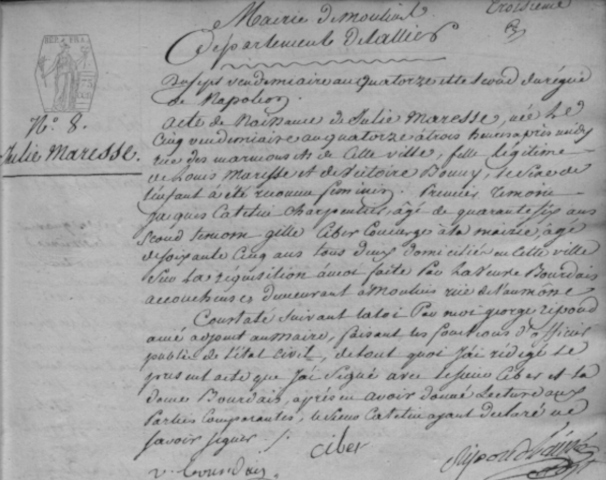 Troisieme
Mairie de moulins
Département de Lallier
REP. FRA.
Du sept vendemiaire an quatorze et le second du régne
de Napoleon.
N.º 8.
Julie Maresse.
acte de Naissance de Julie Maresse, née Le
Cinq vendemiaire an quatorze à trois heures après midi,
rue des de Cette ville, fille légitime
de Louis Maresse et de Victoire, le Sexe de
l'enfant à été reconnu feminin. Premier temoin
Jacques Catelin Charpentier, âgé de quarante six ans
second temoin gille Ciber Concierge à la mairie, agé
de soixante Cinq ans tous deux domiciliés en Cette ville
Sur La requisition à nous faite Par La veuve Bourdais
accoucheuse demeurant à Moulins rue de
Constaté Suivant La loi Par moi george ripoud
ainé adjoint au maire, faisant les fonctions d'officier
public de l'état civil, de tout quoi J'ai rédigé Le
present acte que J'ai Signé avec le sieur Ciber et La
dame Bourdais, après en avoir donné Lecture aux
Parties Comparantes, le sieur Catelin ayant déclaré ne
savoir signer /.
ciber
v. bourdais
Ripoud L'ainé